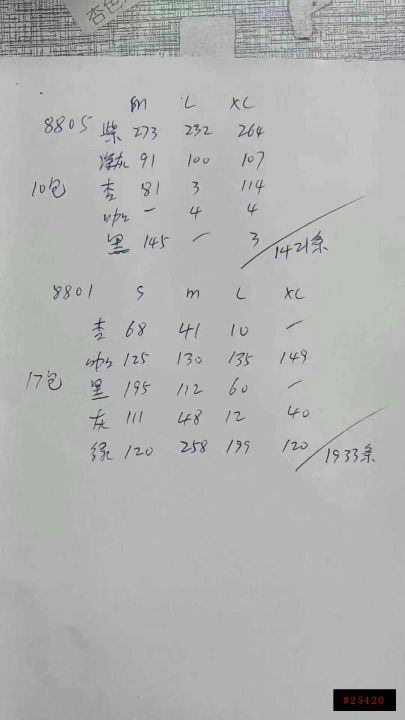 杏色
M L XL
8805 紫 273 232 264
浅灰 91 100 107
10包 杏 81 3 114
咖 一 4 4
黑 145 一 3 1421条
8801 S M L XL
杏 68 41 10 一
咖 125 130 135 149
17包 黑 195 112 60 一
灰 111 48 12 40
绿 120 258 199 120 1933条
#25420